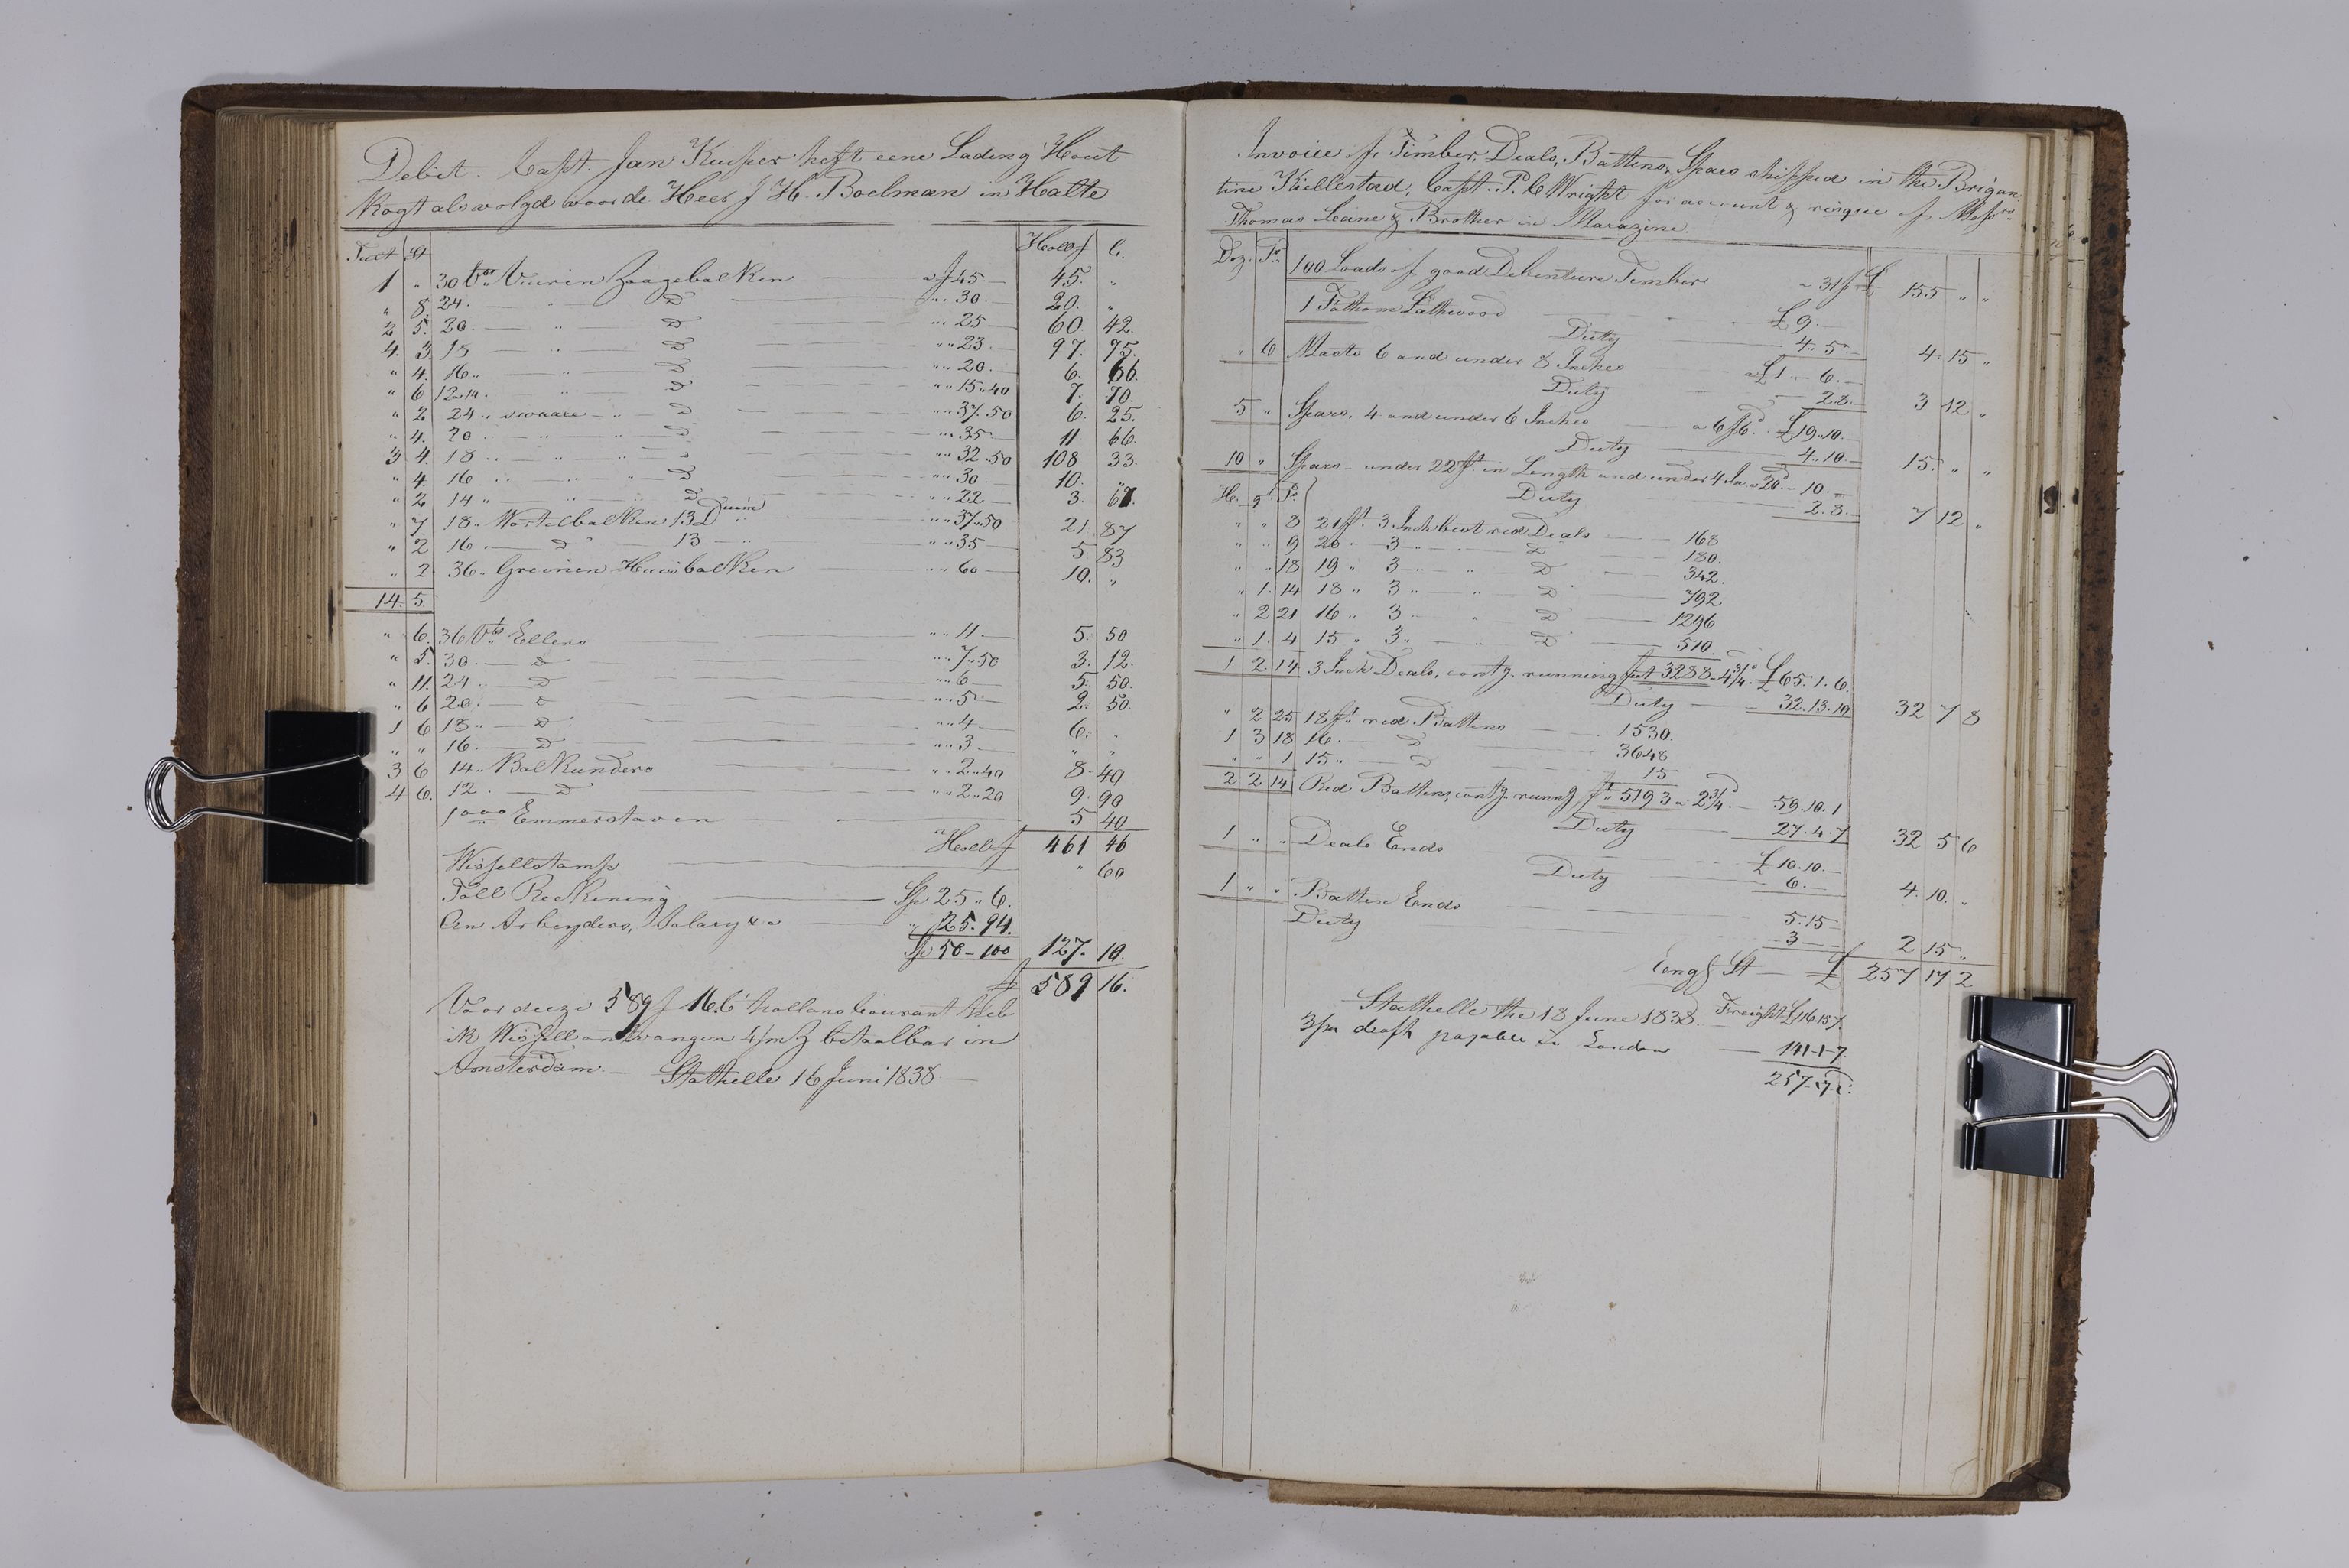 Debet. Capt. Jan Kuiper heft eene Lading Hout
kogt als volgd voor de Heer J H. Boelman in Halte
Tult St Hollf C.
1 " 30 vts Vuuren Zaagebalken a f 45 45. "
" 8. 24. " D " " 30 20. "
2 5. 20. " D " " 25 60. 42.
4. 3. 18 " D " " 23 97. 75.
" 4. 16 " " D " " 20. 6. 66.
" 6 12 a 14. " D " " 15 " 40 7. 70.
" 2 24 " swaare " D " " 37.50 6. 25.
" 4. 20 " " " D " " 35 11 66.
3 4. 18 " " " " " " 32.50 108 33.
" 4. 16 " " " D " " 30 10. "
" 2 14 " " " D " " 22 3. 67.
" 7 18 " Wortelbalken 13 Duim " " 37 " 50 21. 87
" 2 16 D 13 " " " 35 5 83
" 2 36 " Greinen Huusbalken " " 60 10. "
14. 5
" 6. 36 vts Ellers " " 11. 5. 50
" 5. 30. D " " 7 " 50 3. 12.
" 11. 24 D " " 6 5. 50.
" 6 20. D " " 5 2. 50.
1 6 18 " D " " 4 6. "
" " 16. D " " 3 " "
3 6 14 " Balkunders " " 2 " 40 8 40
4 6. 12. D " " 2 " 20 9. 90
1000 Emmerstaven 5 40
Hollf 461 46
Wissellstamp " 60
Toll Reckening Sp 25 " 6.
An Arbeyders, Salary &c " 25.94.
Sp 50 - 100 127. 10.
f 589 16.
Voor deeze 589 f 16 C hollans Courant heb
ik Wissell ontvangen 4/m betaalbar in
Amsterdam. Stathelle 16 Juni 1838
Invoice of Timber, Deals, Battens, Spars shipped in the Brigan-
tine Kiellestad, Capt. P. C Wright for account & risque of Messrs
Thomas Leane & Brother in Marazine.
Doz. Ps.
100 Loads of good Debenture Timber a 31/ £ 155 " "
1 Fathom Lathwood £ 9.
Duty 4. 5 4. 15 "
" 6 Masts 6 and under 8 Inches a £ 1 " 6.
Duty 2.8. 3 12 "
5 " Spars, 4 and under 6 Inches a 6/6d £ 19.10.
Duty 4.10. 15. " "
10 " Spars under 22 ft. in Length and under 4 In a 20d 10.
Duty 2.8. 7 12 "
H. qr. Ps.
" " 8 21 ft. 3 Inch best red Deals 168
" " 9 20 " 3 " D 180.
" " 18 19 " 3 " " D 342.
" 1. 14 18 " 3 " " D 792
" 2 21 16 " 3 " D 1296
" 1. 4 15 " 3 " D 510.
1 2 14. 3 Inch Deals, contg. running feet 3288 a 4 3/4. £ 65. 1. 6.
Duty 32.13.10 32 7 8
" 2 25 18 ft. red Battens 1530.
1 3 18 16. D 3648
" " 1 15 " D 15
2 2 14 Red Battens, contg. runng ft 5193 a 2 3/4. 59.10.1
Duty 27.4.7 32 5 6
1 " " Deals Ends £ 10.10.
Duty 6. 4. 10. "
1 " " Batten Ends 5.15
Duty 3 2 15 "
£ 257 17 2
Stathelle the 18 June 1838. Freight £ 116.15.7.
3/m draft payable in London 141-1-7.
257-17-2.